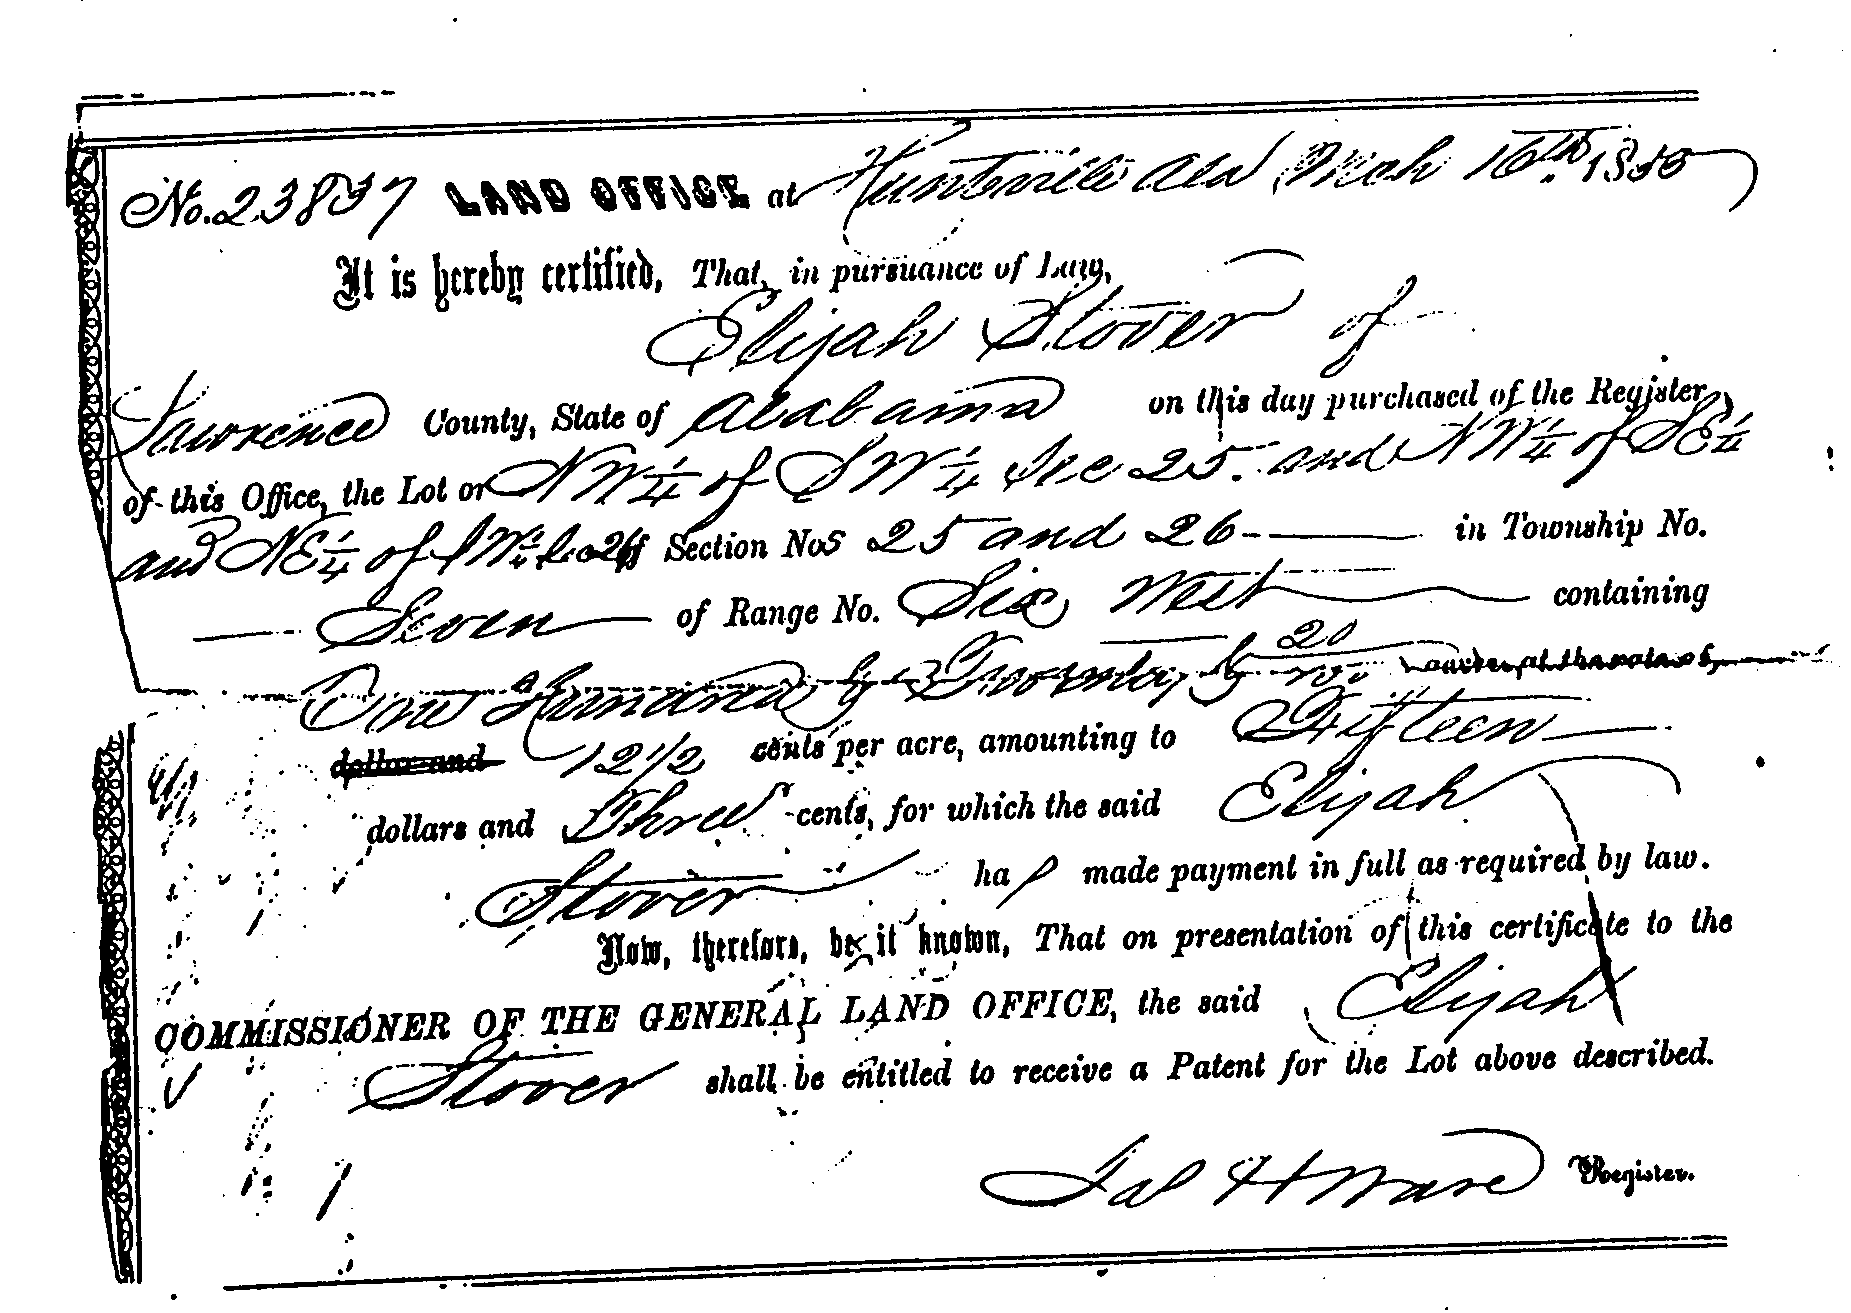 No. 23837 LAND OFFICE at Huntsville Ala Mch 16th 1855
It is hereby certified, That, in pursuance of Law,
Elijah Stover of
Lawrence County, State of Alabama on this day purchased of the Register
of this Office, the Lot or NW 1/4 of SW 1/4 Sec 25. and NW 1/4 of SE 1/4
and NE 1/4 of SW 1/4 Sec 26 of Section Nos 25 and 26 in Township No.
Seven of Range No. Six West containing
One Hundred & Twenty & 20/100 acres, at the rate of
dollar and 12 1/2 cents per acre, amounting to Fifteen
dollars and Three cents, for which the said Elijah
Stover has made payment in full as required by law.
Now, therefore, be it known, That on presentation of this certificate to the
COMMISSIONER OF THE GENERAL LAND OFFICE, the said Elijah
Stover shall be entitled to receive a Patent for the Lot above described.
Jas H Ware Register.